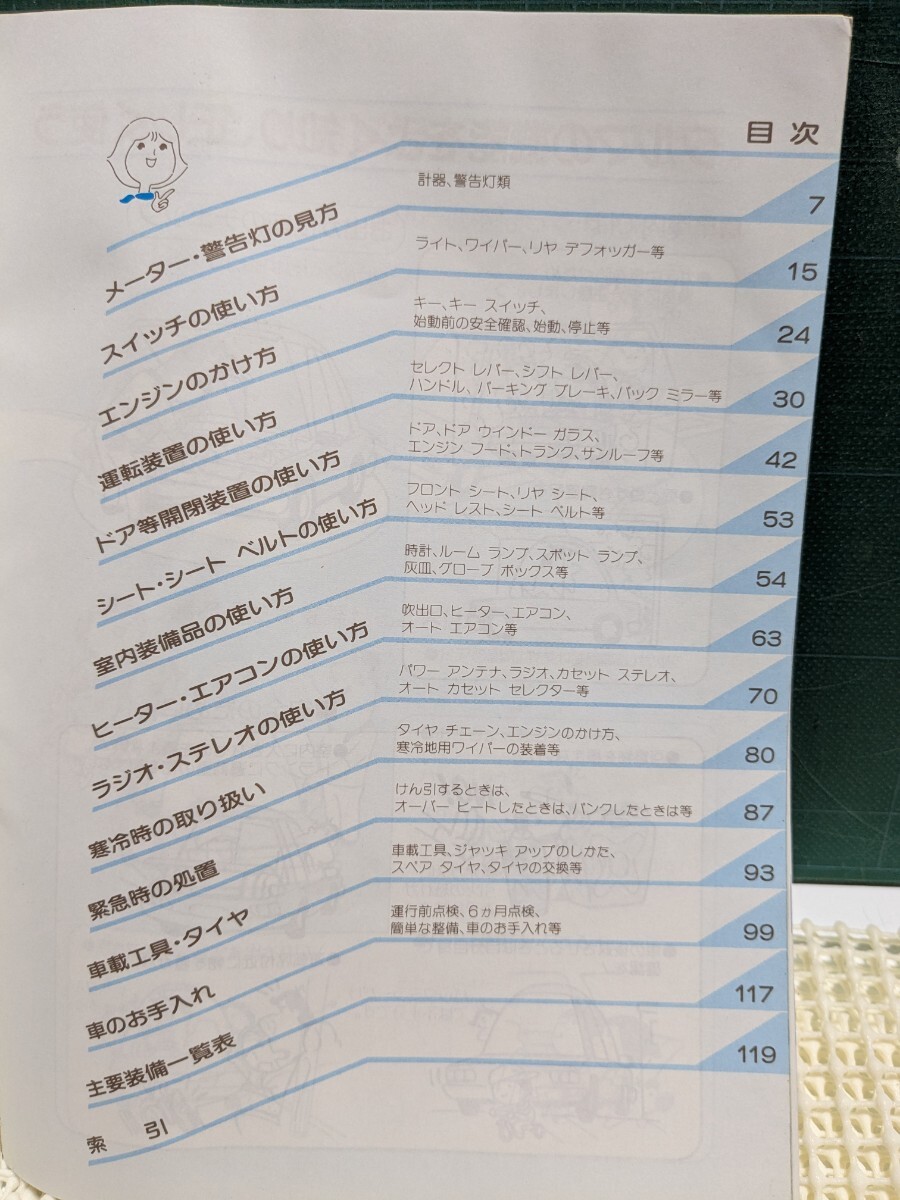 目次
メーター・警告灯の見方
計器、警告灯類
7
スイッチの使い方
ライト、ワイパー、リヤ デフォッガー等
15
エンジンのかけ方
キー、キー スイッチ、
始動前の安全確認、始動、停止等
24
運転装置の使い方
セレクト レバー、シフト レバー、
ハンドル、パーキング ブレーキ、バック ミラー等
30
ドア等開閉装置の使い方
ドア、ドア ウインドー ガラス、
エンジン フード、トランク、サンルーフ等
42
シート・シート ベルトの使い方
フロント シート、リヤ シート、
ヘッド レスト、シート ベルト等
53
室内装備品の使い方
時計、ルーム ランプ、スポット ランプ、
灰皿、グローブ ボックス等
54
ヒーター・エアコンの使い方
吹出口、ヒーター、エアコン、
オート エアコン等
63
ラジオ・ステレオの使い方
パワー アンテナ、ラジオ、カセット ステレオ、
オート カセット セレクター等
70
寒冷時の取り扱い
タイヤ チェーン、エンジンのかけ方、
寒冷地用ワイパーの装着等
80
緊急時の処置
けん引するときは、
オーバー ヒートしたときは、パンクしたときは等
87
車載工具・タイヤ
車載工具、ジャッキ アップのしかた、
スペア タイヤ、タイヤの交換等
93
車のお手入れ
運行前点検、6ヵ月点検、
簡単な整備、車のお手入れ等
99
主要装備一覧表
117
索 引
119